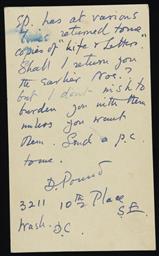 EP. has at various
times returned to me
copies of "Life & Letters."
Shall I return you
the earlier Nos.?
but I don't wish to
burden you with them
unless you want
them. Send a p.c
to me.
D. Pound
3211 10th Place
S.E.
Wash. D.C.